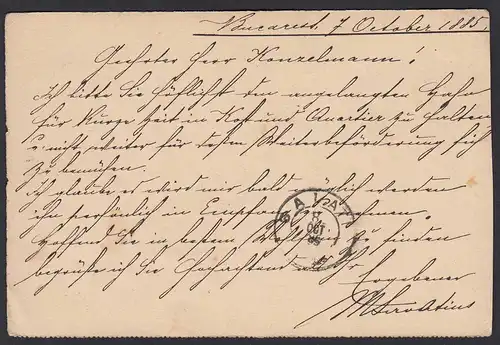 Bucarest, 7 October 1885.
Geehrter Herr Konzelmann!
Ich bitte Sie höflichst den angelangten Hahn
für kurze Zeit in Kost und Quartier zu halten
u. nicht weiter für dessen Weiterbeförderung sich
zu bemühen.
Ich glaube es wird mir bald möglich werden
ihn persönlich in Empfang zu nehmen.
Hoffend Sie in bestem Wohlsein zu finden
begrüße ich Sie Hochachtend Ihr
Ergebener
GALATA
OCT